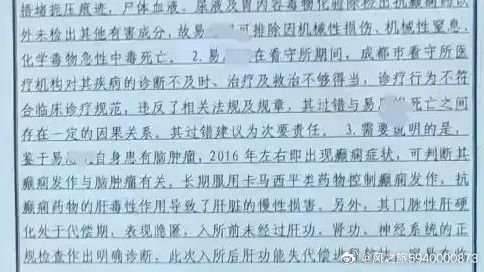 情绪扼压痕迹，尸体血液、尿液及胃内容毒物化验除检出抗癫痫药以
外未检出其他有害成分，故易 可排除因机械性损伤、机械性窒息、
化学毒物急性中毒死亡。 2.易 在看守所期间，成都市看守所医
疗机构对其疾病的诊断不及时、治疗及救治不够得当，诊疗行为不符
合临床诊疗规范，违反了相关法规及规章，其过错与易 死亡之间
存在一定的因果关系。其过错建议为次要责任。 3.需要说明的是，
鉴于易 自身患有脑肿瘤，2016年左右即出现癫痫症状，可判断其
癫痫发作与脑肿瘤有关，长期服用卡马西平类药物控制癫痫发作，抗
癫痫药物的肝毒性作用导致了肝脏的慢性损害。另外，其门脉性肝硬
化处于代偿期、表现隐匿，入所前未经过肝功、肾功、神经系统的正
规检查作出明确诊断，此次入所后肝功能失代偿进
@风之旅5940000873